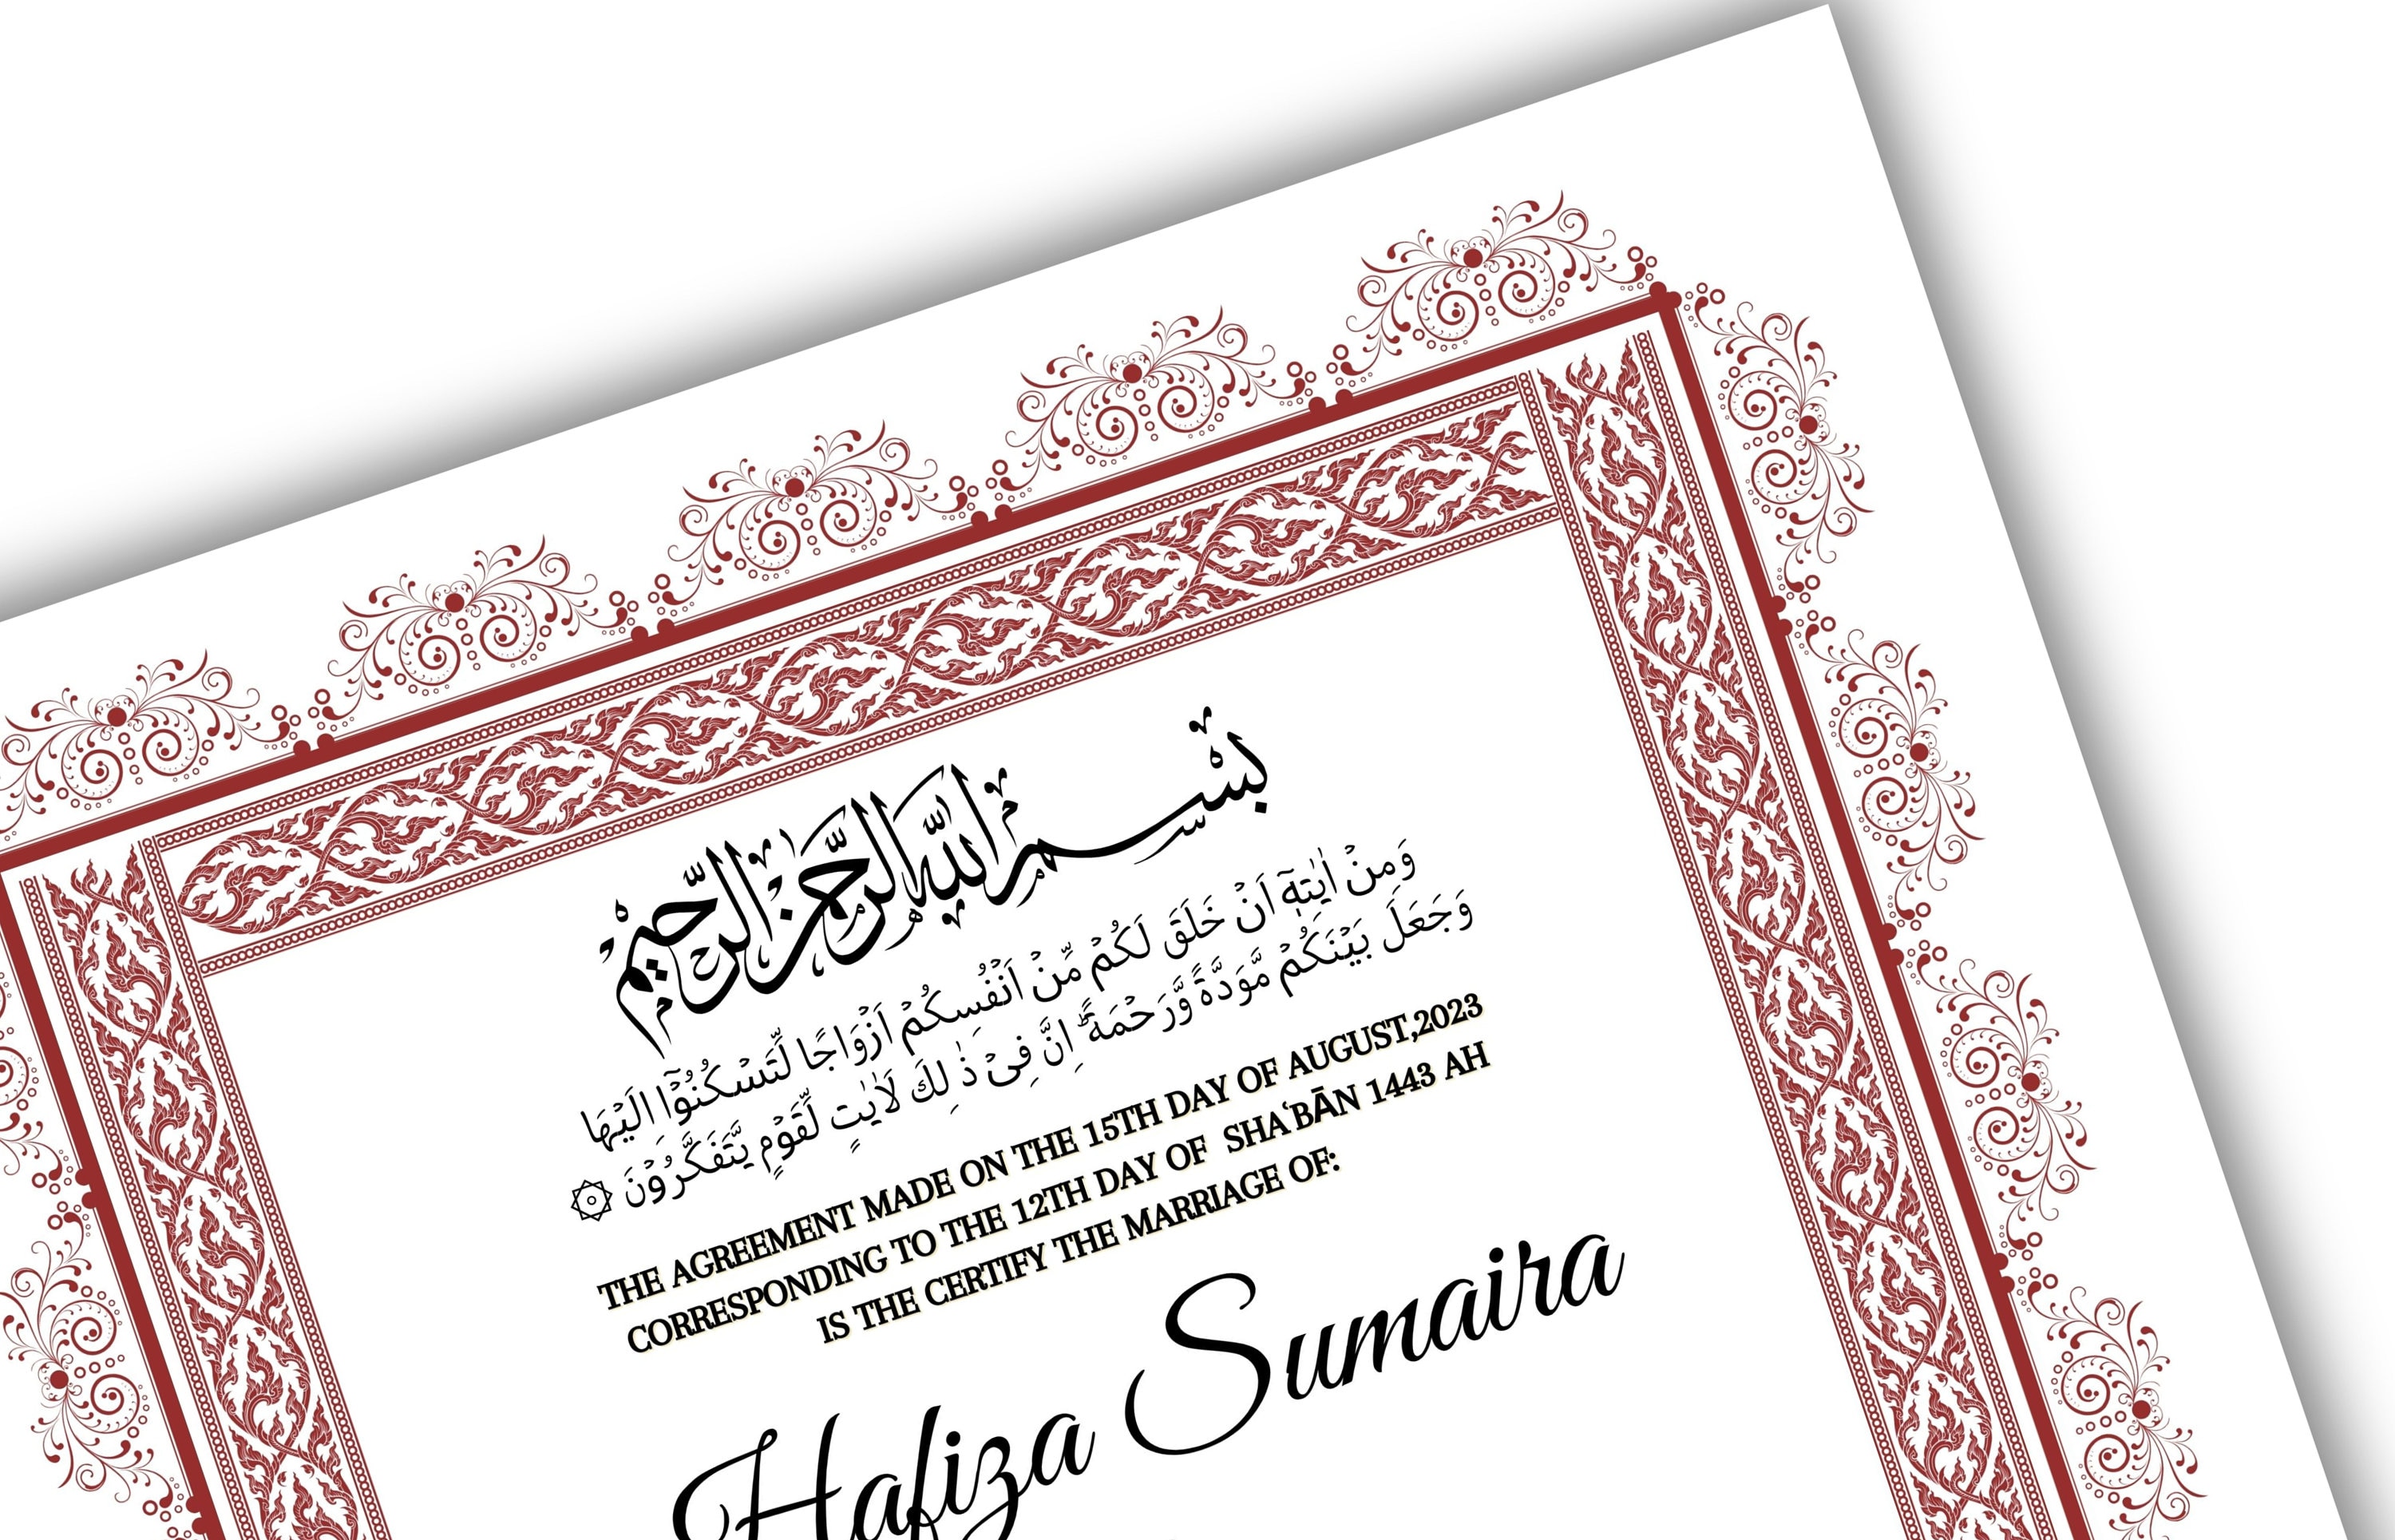 بِسْمِ اللهِ الرَّحْمٰنِ الرَّحِيْمِ
وَمِنْ اٰيٰتِهٖٓ اَنْ خَلَقَ لَكُمْ مِّنْ اَنْفُسِكُمْ اَزْوَاجًا لِّتَسْكُنُوْٓا اِلَيْهَا
وَجَعَلَ بَيْنَكُمْ مَّوَدَّةً وَّرَحْمَةً ؕ اِنَّ فِىْ ذٰ لِكَ لَاٰيٰتٍ لِّقَوْمٍ يَّتَفَكَّرُوْنَ ۞
THE AGREEMENT MADE ON THE 15TH DAY OF AUGUST,2023
CORRESPONDING TO THE 12TH DAY OF SHAʿBĀN 1443 AH
IS THE CERTIFY THE MARRIAGE OF:
Hafiza Sumaira